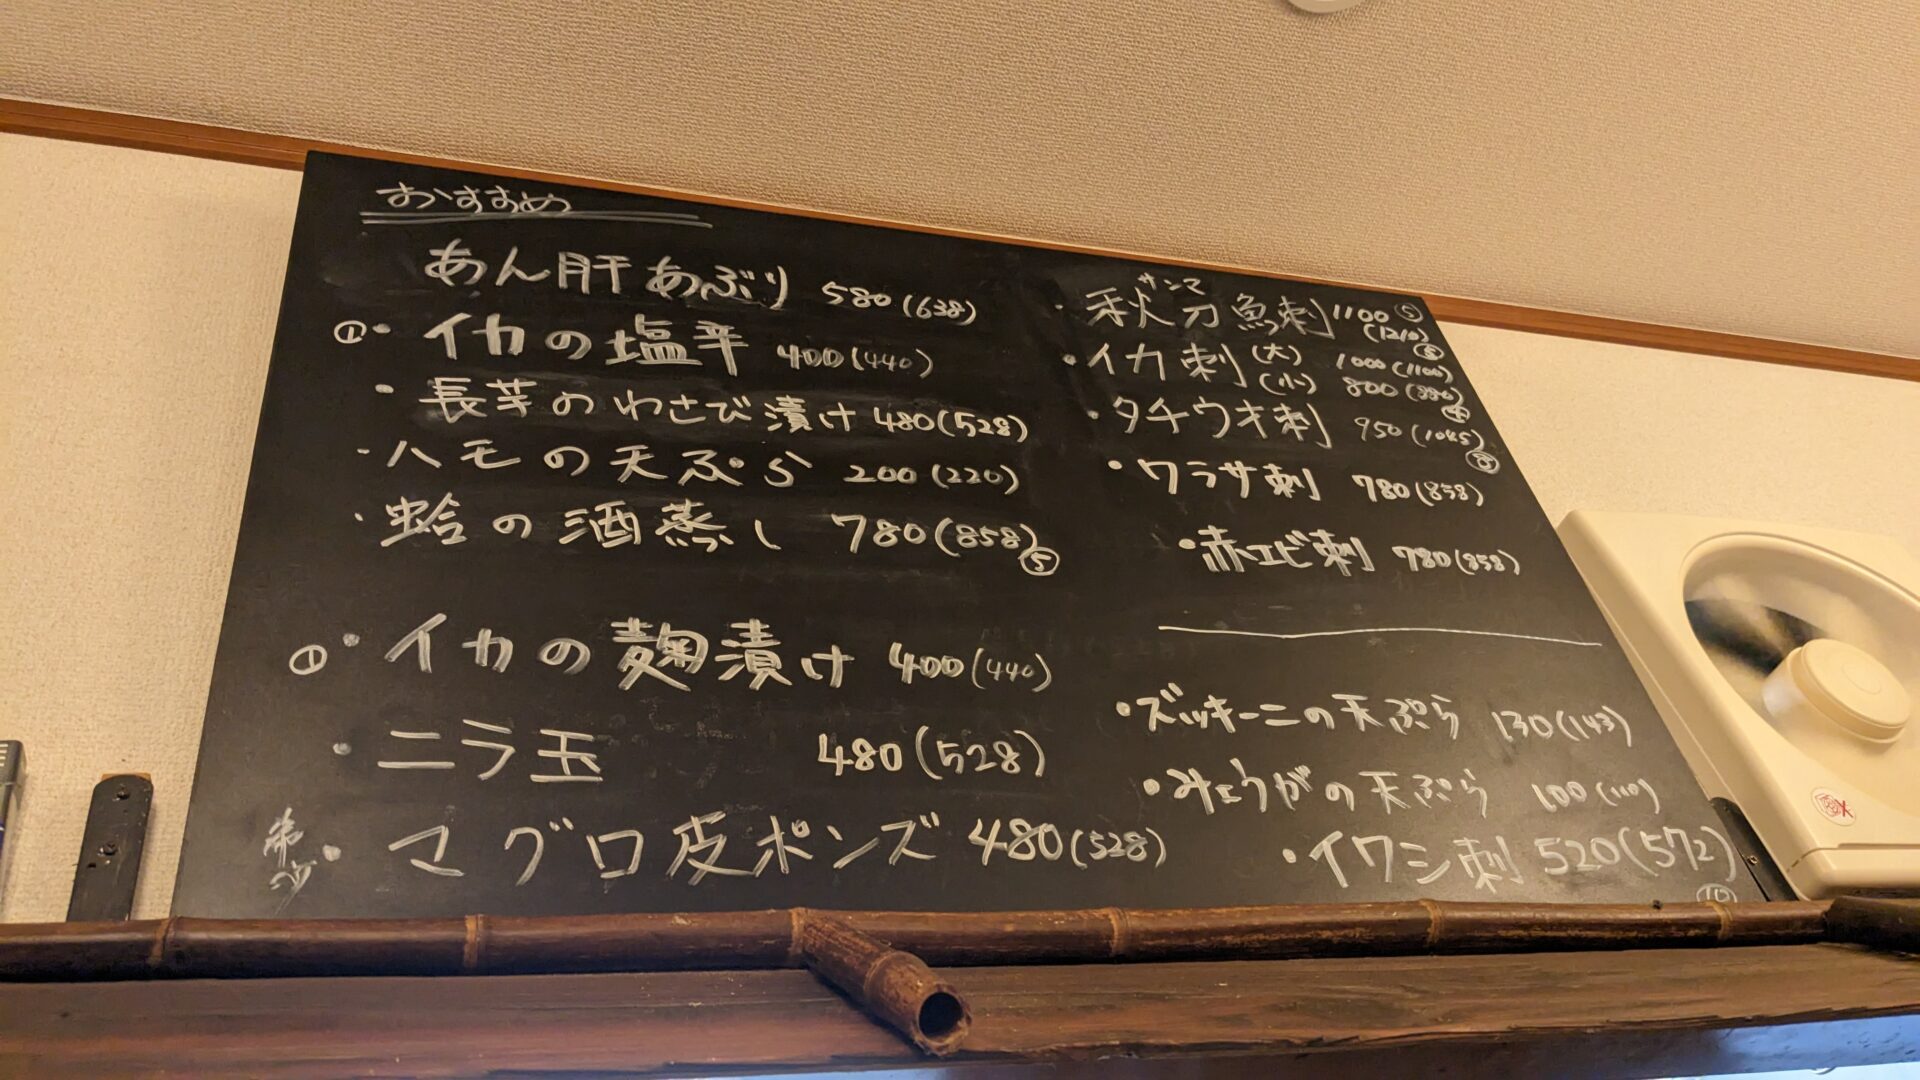 おすすめ
あん肝あぶり 580(638)
①・イカの塩辛 400(440)
・長芋のわさび漬け 480(528)
・ハモの天ぷら 200(220)
・蛤の酒蒸し 780(858)
⑤
①・イカの麹漬け 400(440)
・ニラ玉 480(528)
・マグロ皮ポンズ 480(528)
サンマ
・秋刀魚刺 1100 ⑤
(1210)
・イカ刺 (大) 1000(1100)
(小) 800(880)
・タチウオ刺 950(1045)
・ワラサ刺 780(858)
・赤エビ刺 780(858)
・ズッキーニの天ぷら 130(143)
・みょうがの天ぷら 100(110)
・イワシ刺 520(572)
⑩